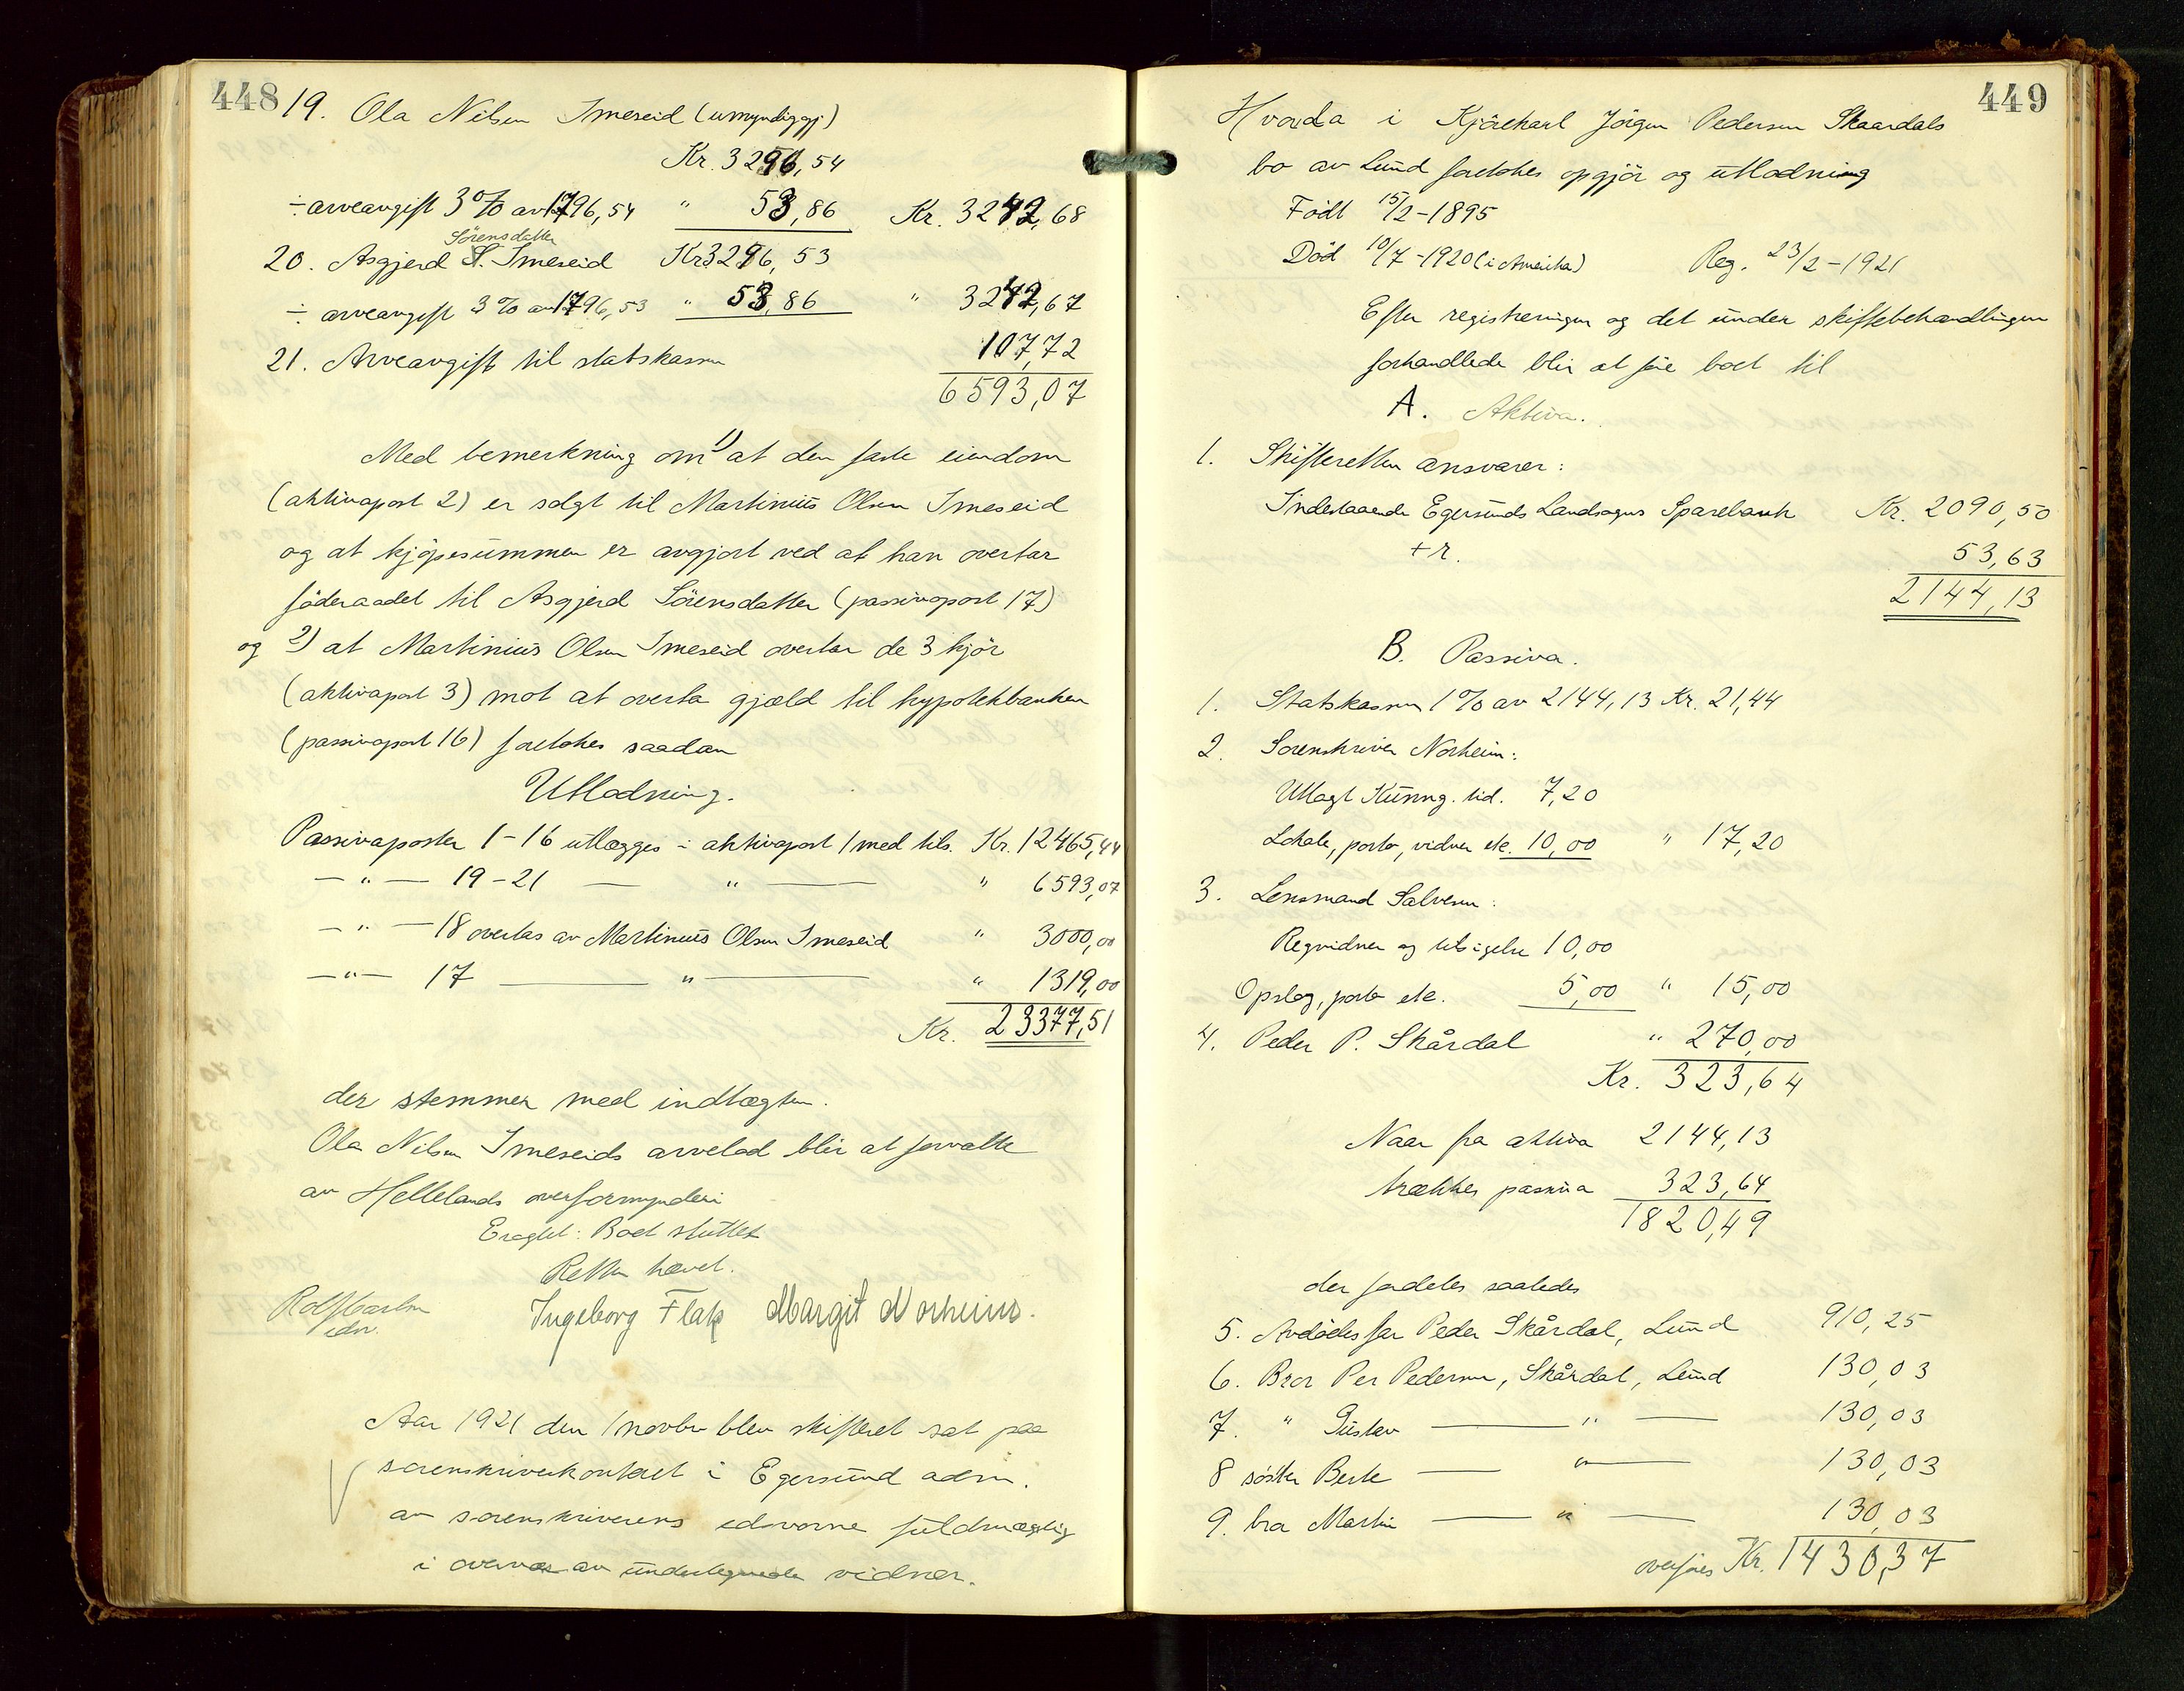 448
19. Ola Nilsen Imeseid (umyndiggj.)
Kr. 3296,54
÷ arveavgift 3% av 1796,54 " 53,86 Kr. 3242,68
Sörensdatter
20. Asgjerd S. Imeseid Kr 3296,53
÷ arveavgift 3% av 1796,53 " 53,86 " 3242,67
21. Arveavgift til statskassen 107,72
6593,07
Med bemerkning om 1) at den faste eiendom
(aktivapost 2) er solgt til Martinius Olsen Imeseid
og at kjöpesummen er avgjort ved at han overtar
föderaadet til Asgjerd Sörensdatter (passivapost 17)
og 2) at Martinius Olsen Imeseid overtar de 3 kjör
(aktivapost 3) mot at overta gjæld til hypotekbanken
(passivapost 16) foretokes saadan
Utlodning.
Passivaposter 1-16 utlægges i aktivapost 1 med tils. Kr. 12465,44
— " — 19-21 — " — " 6593,07
— " — 18 overtas av Martinius Olsen Imeseid " 3000,00
— " — 17 — " — " 1319,00
Kr. 23377,51
der stemmer med indtægten.
Ola Nilsen Imeseids arvelod blir at forvalte
av Hellelands overformynderi
Eragtet: Boet sluttet
Retten hævet.
edsv.
Ingeborg Flak Margit Norheim.
Aar 1921 den 1 novbr blev skifteret sat paa
sorenskriverkontoret i Egersund adm.
av sorenskriverens edsvorne fuldmægtig
i overvær av undertegnede vidner.
449
Hvorda i Kjörekarl Jörgen Pedersen Skaardals
bo av Lund foretokes opgjör og utlodning
Födt 15/2-1895
Död 10/7-1920 (i Amerika) Reg. 23/2-1921
Efter registreringen og det under skiftebehandlingen
forhandlede blir at före boet til
A. Aktiva.
1. Skifteretten ansvarer:
Indestaaende Egersunds Landsogns Sparebank Kr. 2090,50
+ r. 53,63
2144,13
B. Passiva.
1. Statskassen 1% av 2144,13 Kr. 21,44
2. Sorenskriver Norheim:
Utlagt Kunng. tid. 7,20
Lokale, porto, vidner etc. 10,00 " 17,20
3. Lensmand Salvesen:
Regvidner og utsigelse 10,00
Opslag, porto etc. 5,00 " 15,00
4. Peder P. Skårdal " 270,00
Kr. 323,64
Naar fra aktiva 2144,13
trækkes passiva 323,64
1820,49
der fordeles saaledes
5. Avdödes far Peder Skårdal, Lund 910,25
6. Bror Per Pedersen, Skårdal, Lund 130,03
7. " Gustav — " — 130,03
8 söster Berte — " — 130,03
9. bror Martin — " — 130,03
overföres Kr. 1430,37